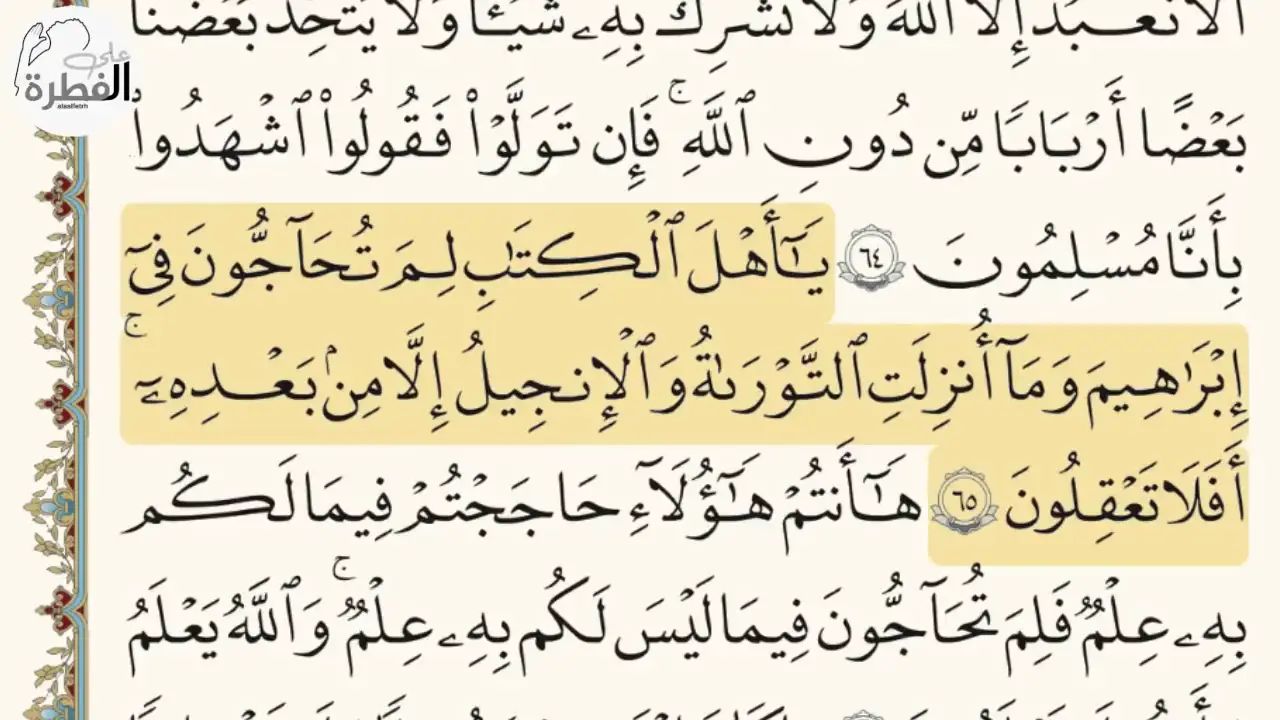 على
الفطرة
alaalfetrh
أَلَّا نَعۡبُدَ إِلَّا ٱللَّهَ وَلَا نُشۡرِكَ بِهِۦ شَيۡـٔٗا وَلَا يَتَّخِذَ بَعۡضُنَا
بَعۡضًا أَرۡبَابٗا مِّن دُونِ ٱللَّهِۚ فَإِن تَوَلَّوۡاْ فَقُولُواْ ٱشۡهَدُواْ
بِأَنَّا مُسۡلِمُونَ ٦٤ يَـٰٓأَهۡلَ ٱلۡكِتَٰبِ لِمَ تُحَآجُّونَ فِيٓ
إِبۡرَٰهِيمَ وَمَآ أُنزِلَتِ ٱلتَّوۡرَىٰةُ وَٱلۡإِنجِيلُ إِلَّا مِنۢ بَعۡدِهِۦٓۚ
أَفَلَا تَعۡقِلُونَ ٦٥ هَـٰٓأَنتُمۡ هَـٰٓؤُلَآءِ حَٰجَجۡتُمۡ فِيمَا لَكُم
بِهِۦ عِلۡمٞ فَلِمَ تُحَآجُّونَ فِيمَا لَيۡسَ لَكُم بِهِۦ عِلۡمٞۚ وَٱللَّهُ يَعۡلَمُ